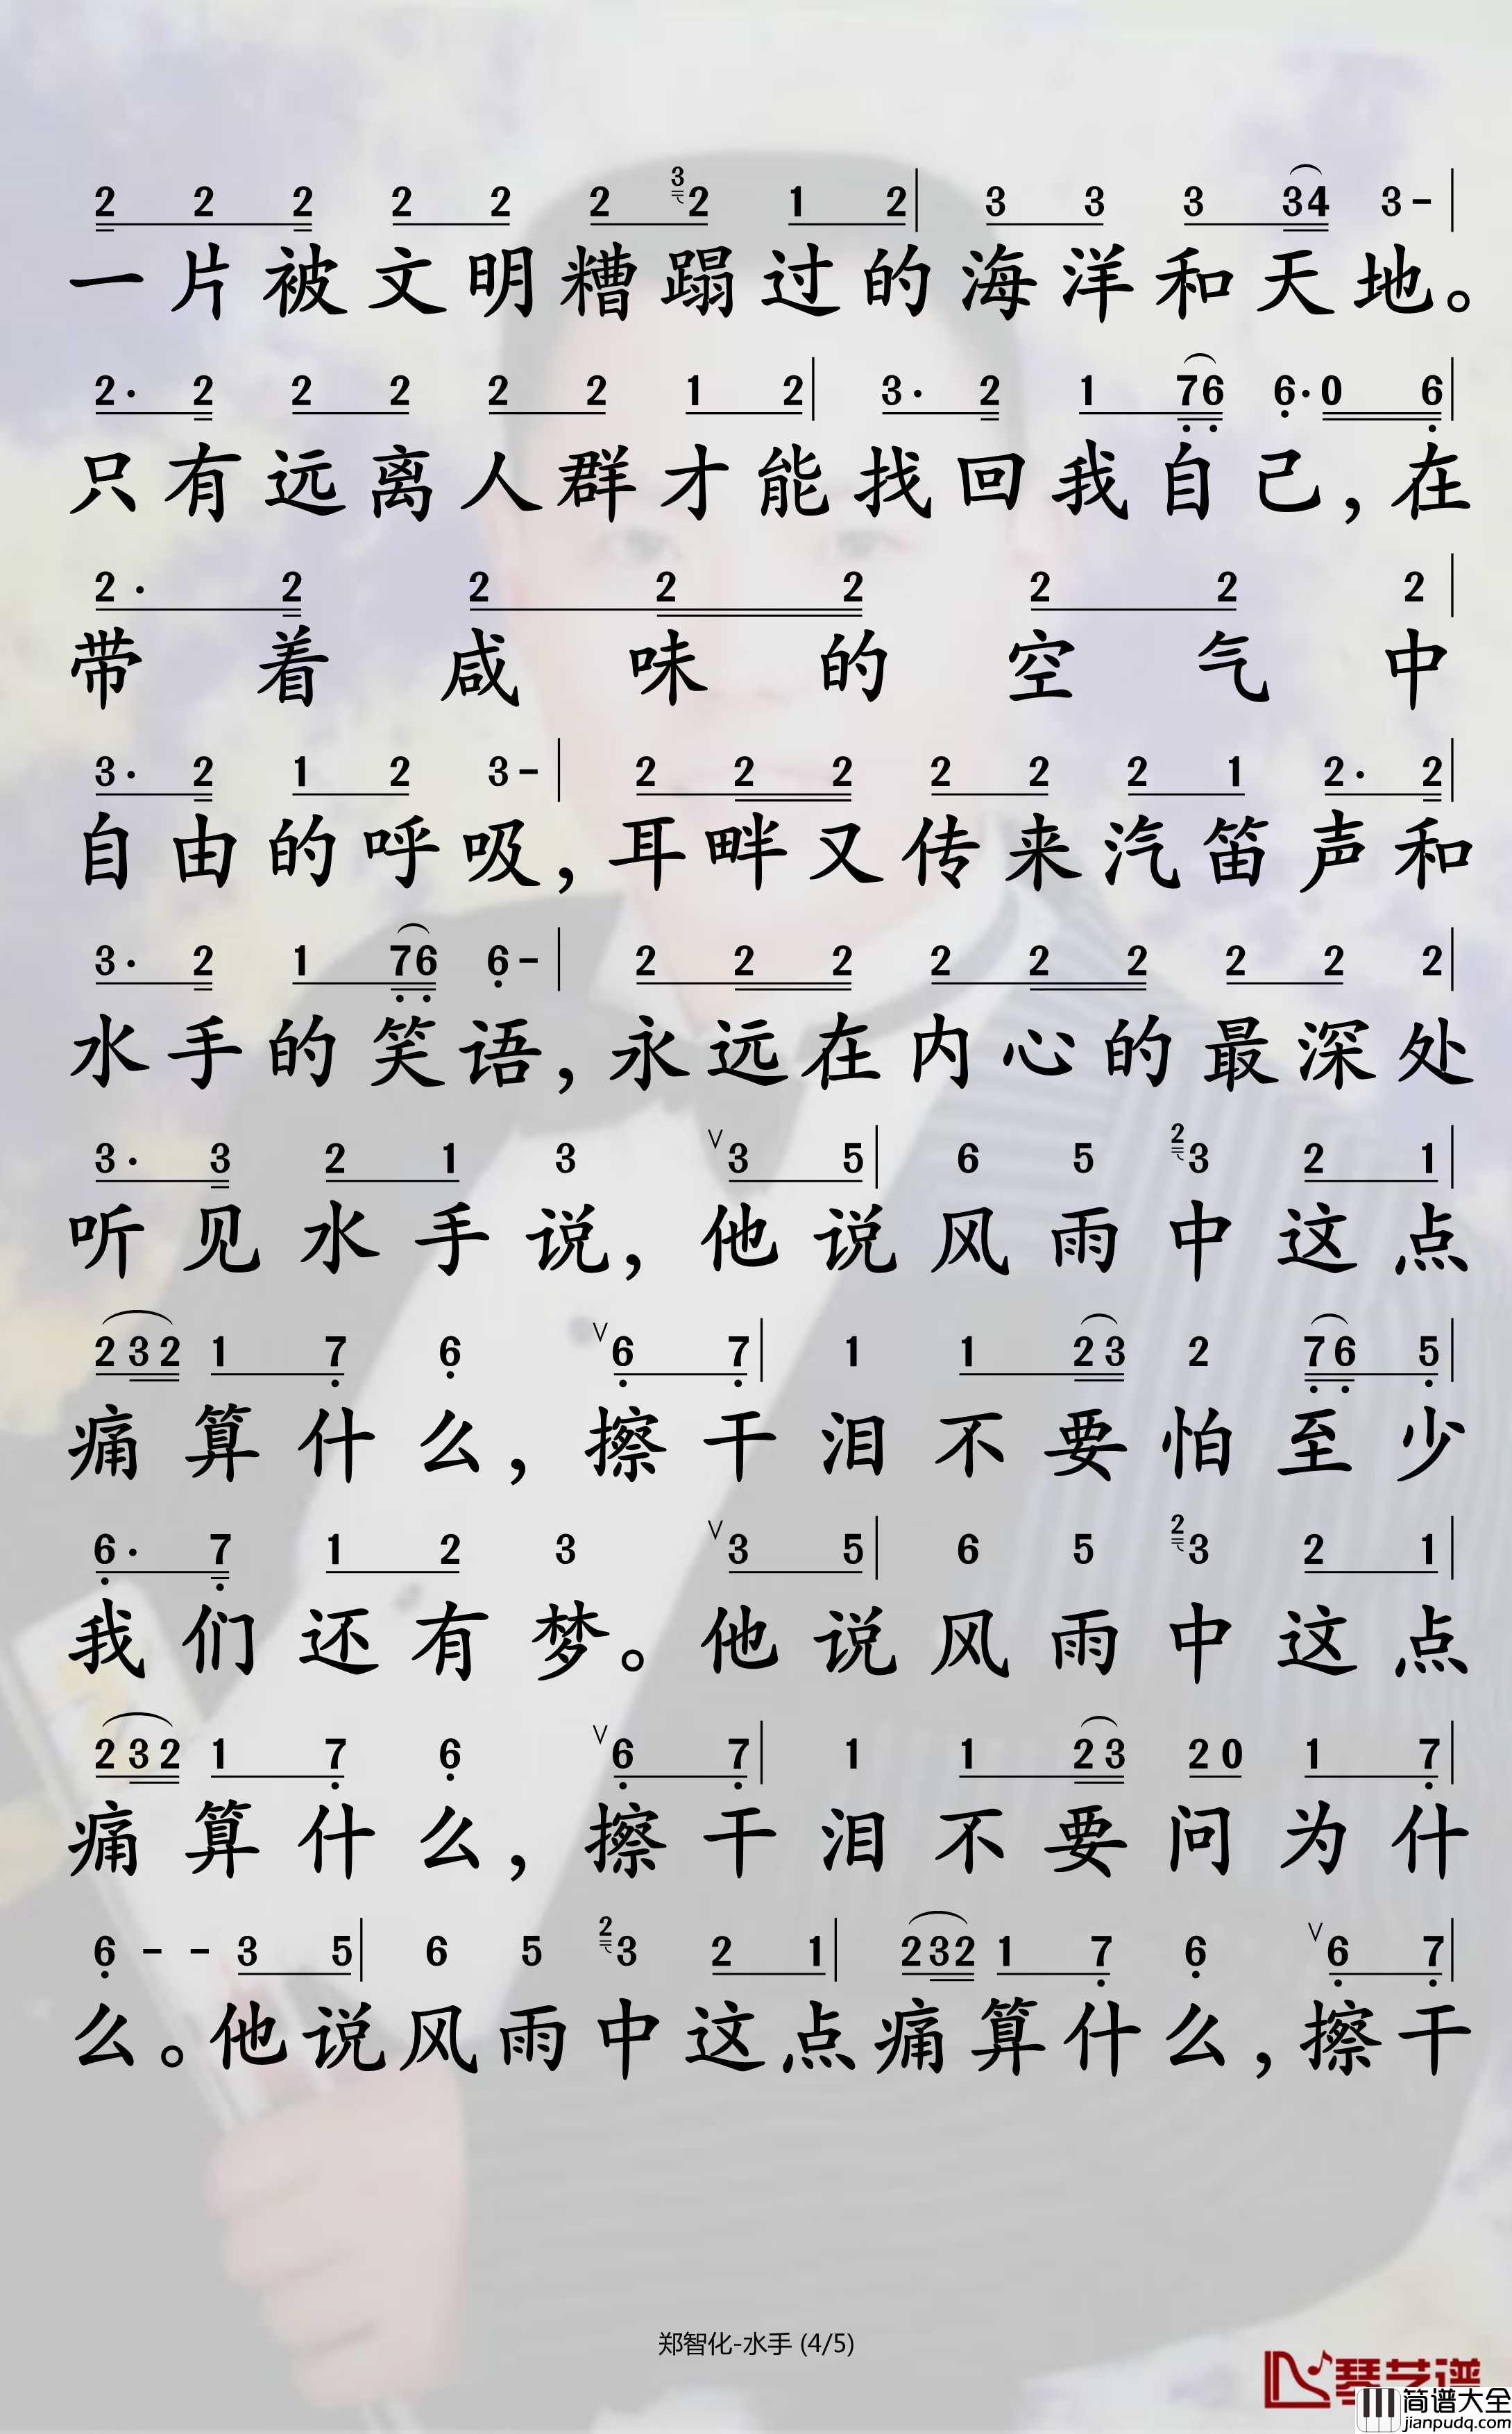 2 2 2 2 2 2 3 2 1 2 | 3 3 3 34 3 - |
一片被文明糟蹋过的海洋和天地。
2· 2 2 2 2 2 1 2 | 3· 2 1 76 6·0 6 |
只有远离人群才能找回我自己,在
2· 2 2 2 2 2 2 2 |
带着咸味的空气中
3· 2 1 2 3 - | 2 2 2 2 2 2 1 2· 2 |
自由的呼吸,耳畔又传来汽笛声和
3· 2 1 76 6 - | 2 2 2 2 2 2 2 2 2 |
水手的笑语,永远在内心的最深处
3· 3 2 1 3 V 3 5 | 6 5 2 3 2 1 |
听见水手说,他说风雨中这点
232 1 7 6 V 6 7 | 1 1 23 2 76 5 |
痛算什么,擦干泪不要怕至少
6· 7 1 2 3 V 3 5 | 6 5 2 3 2 1 |
我们还有梦。他说风雨中这点
232 1 7 6 V 6 7 | 1 1 23 20 1 7 |
痛算什么,擦干泪不要问为什
6 - - 3 5 | 6 5 2 3 2 1 | 232 1 7 6 V 6 7 |
么。他说风雨中这点痛算什么,擦干
郑智化-水手 (4/5)
琴艺谱
简谱大全
jianpudq.com